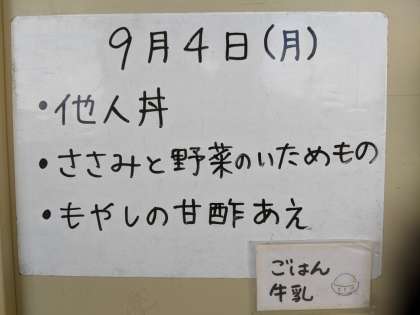 9月4日(月)
・他人丼
・ささみと野菜のいためもの
・もやしの甘酢あえ
ごはん
牛乳